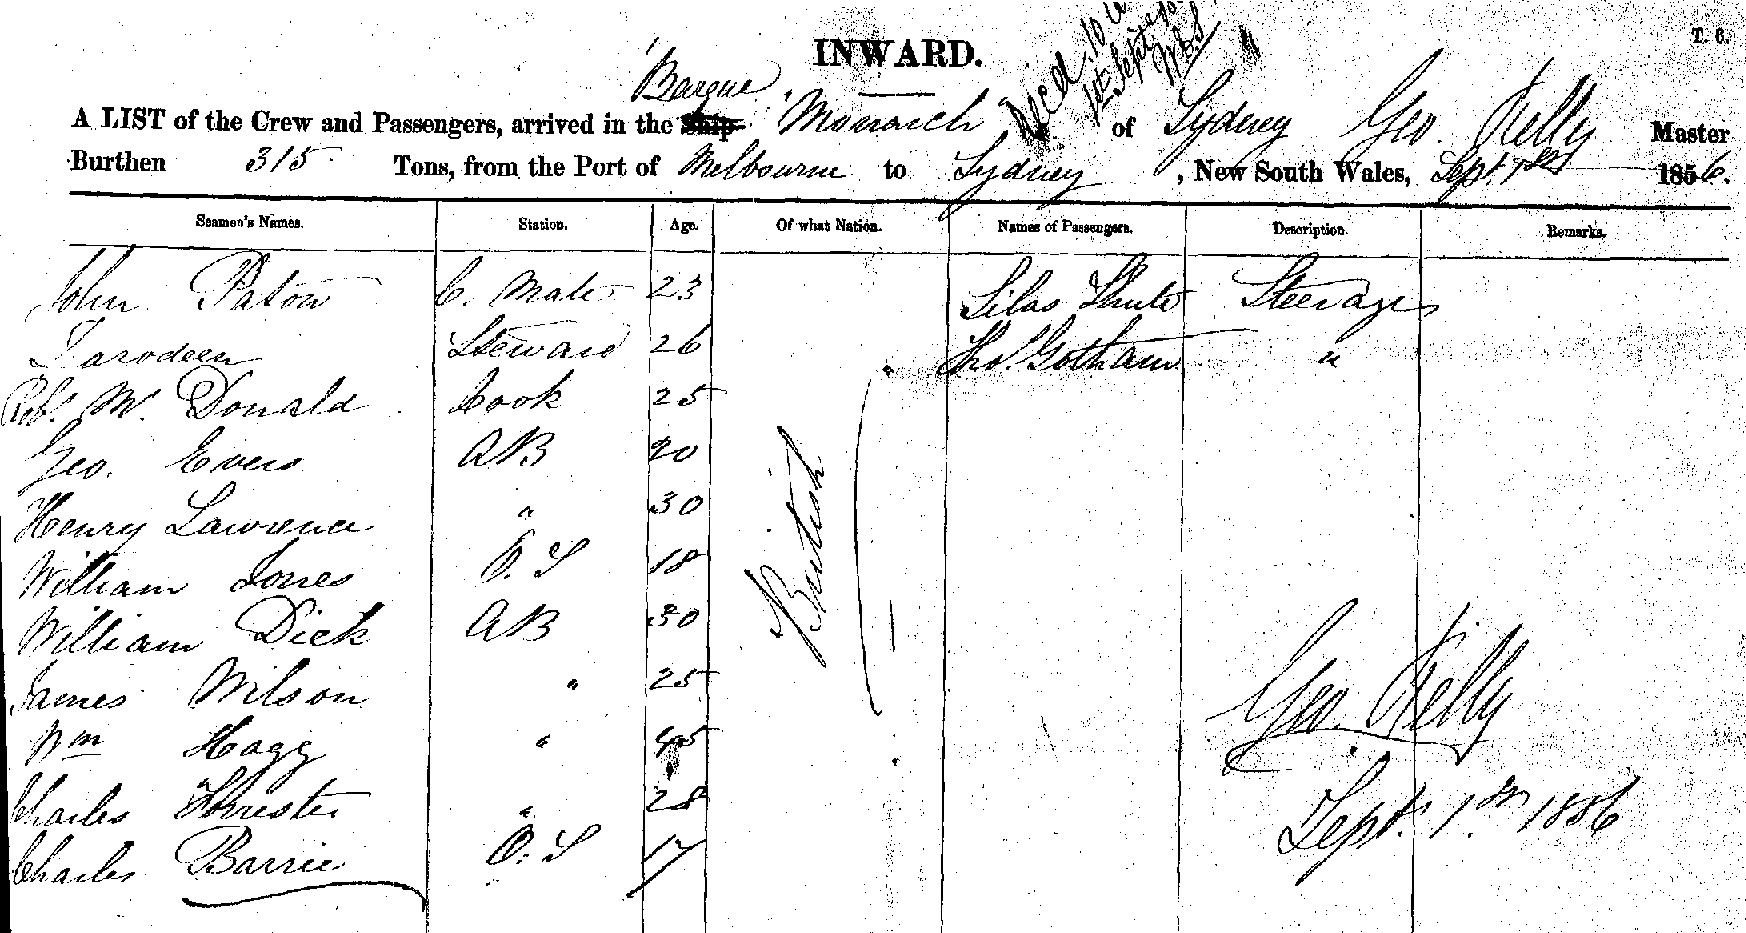 T. 6.
INWARD.
Recd 10
1st Sept
Barque
A LIST of the Crew and Passengers, arrived in the Ship Monarch of Sydney Geo. Kelly Master
Burthen 315 Tons, from the Port of Melbourne to Sydney, New South Wales, Sept. 1st 1856.
Seamen's Names. Station. Age. Of what Nation. Names of Passengers. Description. Remarks.
John Paton C. Mate 23 Silas Shute Steerage
Tarodeen Steward 26 Thos. Gotham "
Robt. Mc. Donald Cook 25
Geo. Evers AB 20
Henry Lawrence " 30
British
William Jones O.S 18
William Dick AB 30
James Wilson " 25
Wm Hagg " 45
Geo. Kelly
Charles Forrester " 28
Sept. 1st 1856
Charles Barrie O.S 17